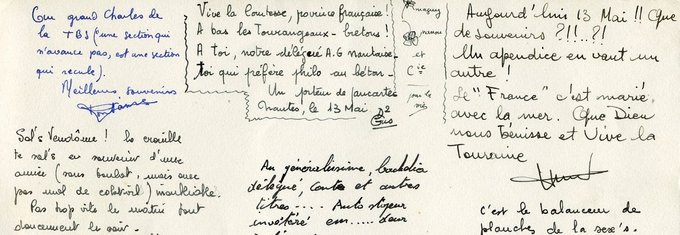 Au grand Charles de
la TBS ("une section qui
n'avance pas, est une section
qui recule).
Meilleurs souvenirs
Vive la Comtesse, province française!
A bas les Tourangeaux-bretons!
A toi, notre délégué A.G nantaise
toi qui préfère philo au béton.
Un porteur de pancartes
Nantes, le 13 Mai
et
Cie
Aujourd'hui 13 Mai!! Que
de souvenirs ?!!..?!
Un apendice en vaut un
autre!
Le "France" c'est marié
avec la mer. Que Dieu
nous bénisse et Vive la
Touraine
Sal's Vendôme! la
te sal's en souvenir d'une
amie (sans boulot, mais avec
pas mal de
Pas trop vite le matin tout
doucement le soir.
Au généralissime,
délégué, et autres
titres.... Auto stoppeur
invétéré em.....deur
c'est le balanceur de
planches de la